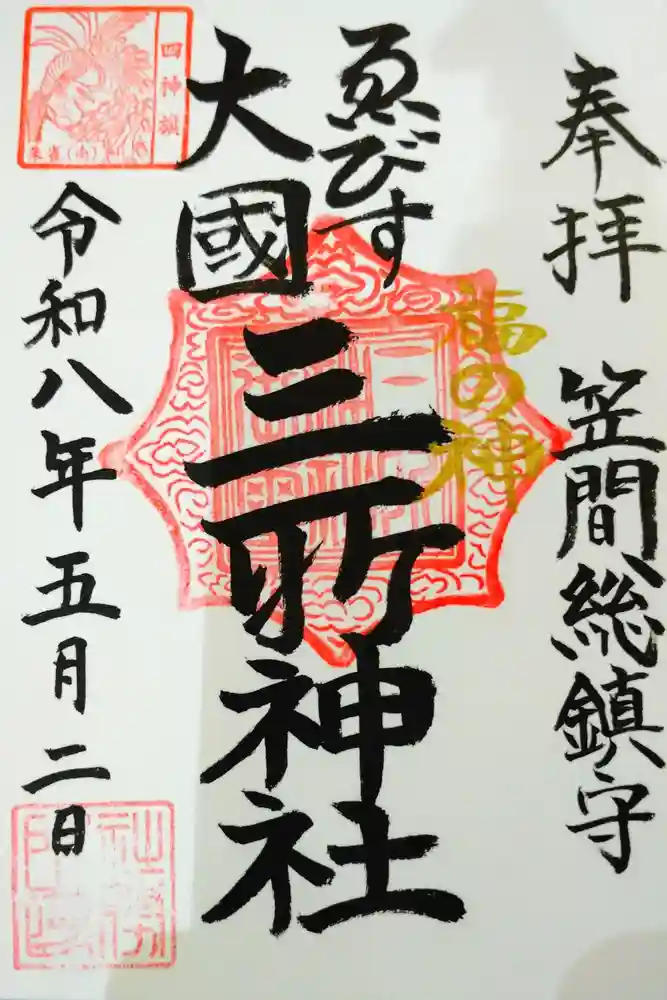 奉拝 笠間総鎮守
福の神
ゑびす
大國
三所神社
令和八年五月二日
四神旗
朱雀(南)
社務所印